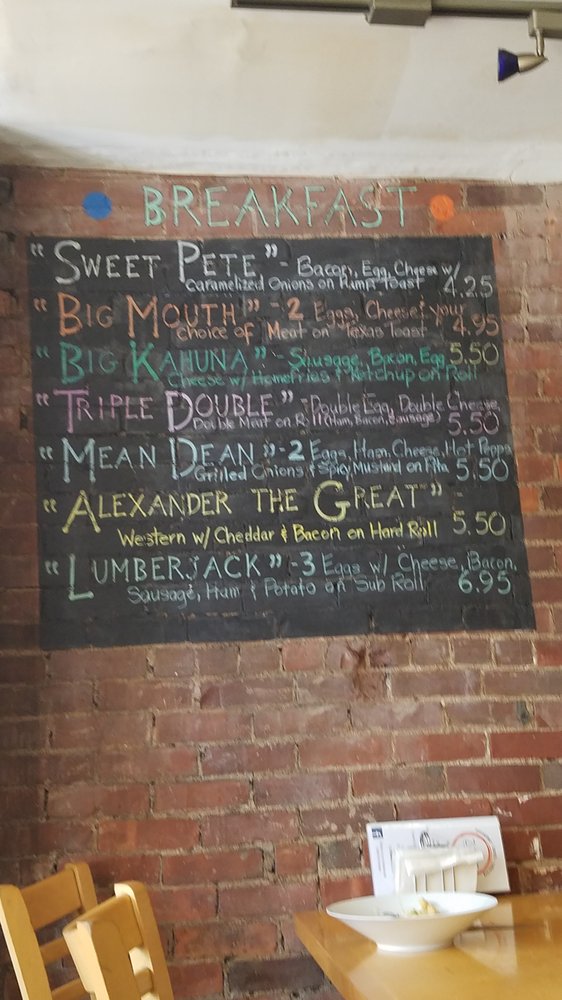 BREAKFAST
"SWEET PETE" - Bacon, Egg, Cheese w/
Caramelized Onions on Pump. Toast 4.25
"BIG MOUTH" - 2 Eggs, Cheese & your
Choice of Meat on Texas Toast 4.95
"BIG KAHUNA" - Sausage, Bacon, Egg 5.50
Cheese w/ Homefries & Ketchup on Roll
"TRIPLE DOUBLE" - Double Egg, Double Cheese,
Double Meat on Roll (Ham, Bacon, Sausage) 5.50
"MEAN DEAN" - 2 Eggs, Ham, Cheese, Hot Pepps
Grilled Onions & Spicy Mustard on Pita 5.50
"ALEXANDER THE GREAT" -
Western w/ Cheddar & Bacon on Hard Roll 5.50
"LUMBERJACK" - 3 Eggs w/ Cheese, Bacon,
Sausage, Ham & Potato on Sub Roll 6.95